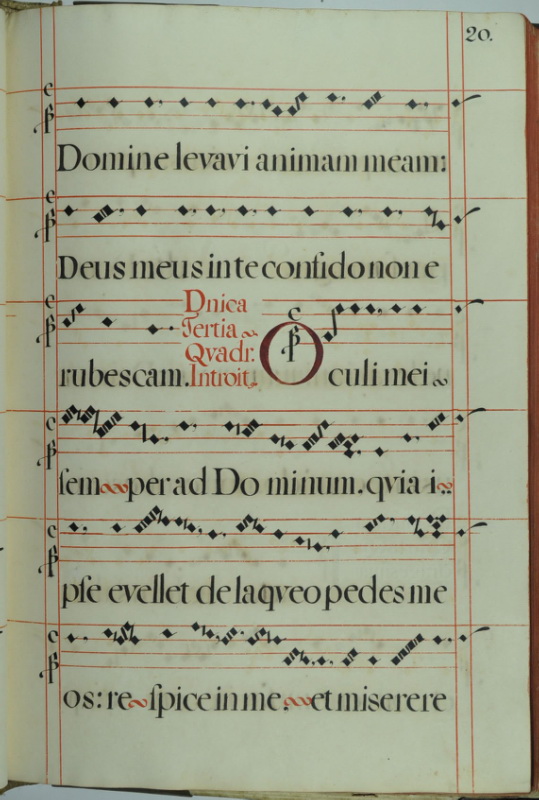 20.
Domine levavi animam meam:
Deus meus in te confido non e
rubescam.
Dnica
Tertia
Qvadr.
Introit.
Oculi mei
sem per ad Do minum. qvia i:
pse evellet de laqveo pedes me
os: re spice in me: et miserere